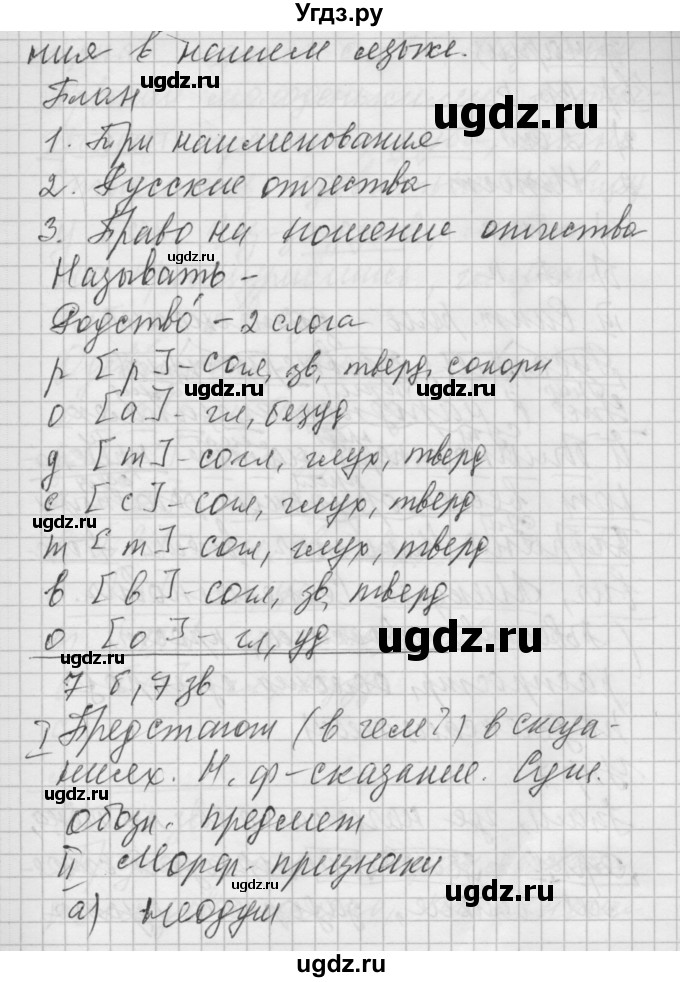 Угдз.ру
ния в нашем языке.
План
ugdz.ru
ugdz.ru
1. Три наименования
2. Русские отчества
3. Право на ношение отчества
Называть -
ugdz.ru
Родство́ - 2 слога
р [р] - согл, зв, тверд, сонорн
ugdz.ru
ugdz.ru
о [а] - гл, безуд
д [т] - согл, глух, тверд
с [с] - согл, глух, тверд
ugdz.ru
т [т] - согл, глух, тверд
в [в] - согл, зв, тверд
о [о] - гл, уд
ugdz.ru
ugdz.ru
7 б, 7 зв
I Предстают (в чем?) в сказа-
ниях. Н. ф - сказание. Сущ.
ugdz.ru
ugdz.ru
обозн. предмет
II Морф. признаки
ugdz.ru
а) неодуш
ugdz.ru